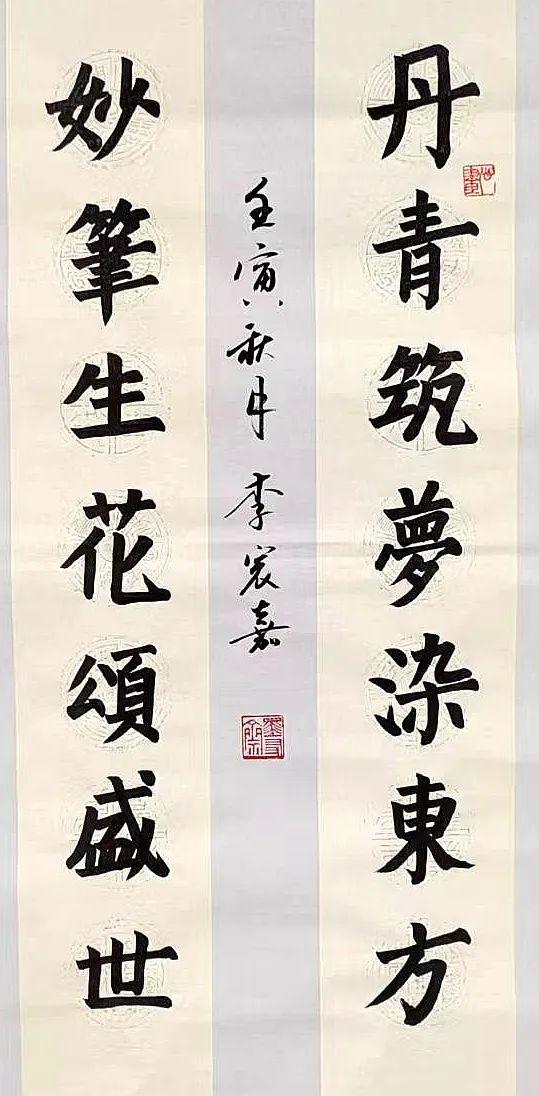 丹青筑夢染東方
妙筆生花頌盛世
壬寅秋月 李宸嘉